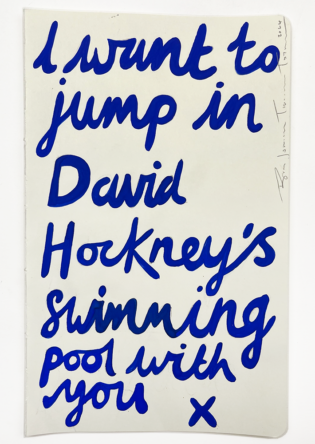 I want to
jump in
David
Hockney's
swimming
pool with
you x